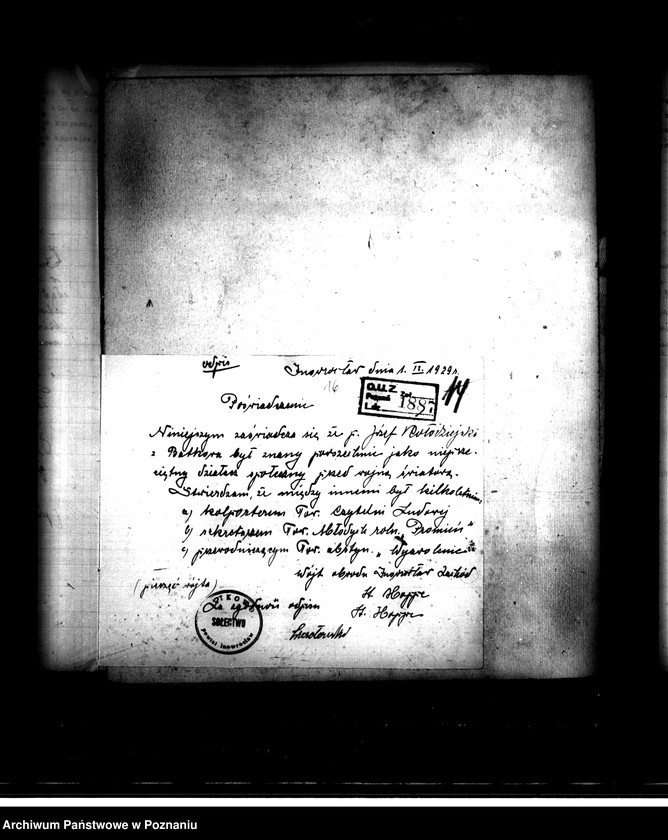 odpis
Inowrocław dnia 1. IX. 1929 r.
16
O.U.Z.
Poznań
L.dz. 1897
14
Poświadczenie
Niniejszym zaświadcza się że p. Józef Kołodziejski
z Batkowa był znany powszechnie jako nieprze-
ciętny działacz społeczny przed wojną światową.
Stwierdzam, że między innemi był kilkoletnim
a) kolporterem Tow. Czytelni Ludowej
b) sekretarzem Tow. Młodych roln. "Promień"
c) przewodniczącym Tow. abstyn. "Wyzwolenie"
Wójt obwodu Inowrocław Zachód
(pieczęć wójta)
St. Hoppe
Za zgodność odpisu
St. Hoppe
SOŁECTWO
Powiat Inowrocław
Archiwum Państwowe w Poznaniu